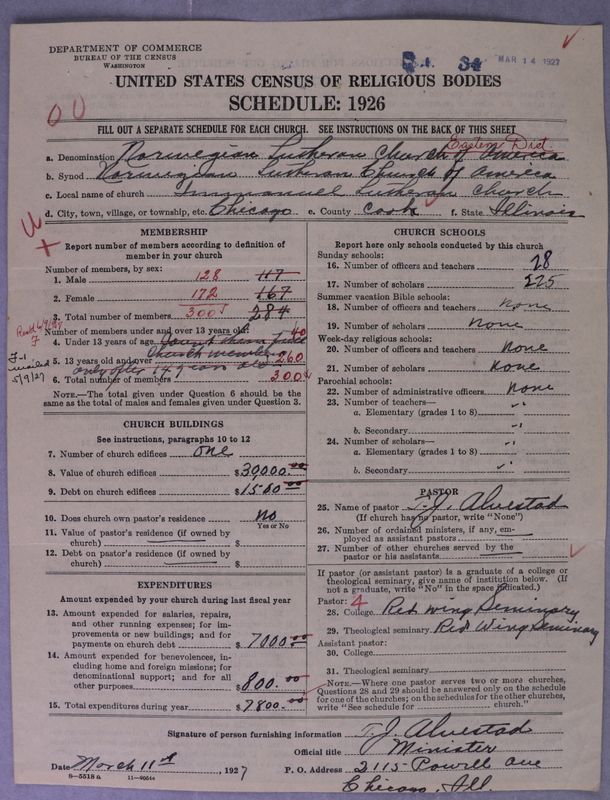 DEPARTMENT OF COMMERCE
BUREAU OF THE CENSUS
WASHINGTON
MAR 14 1927
UNITED STATES CENSUS OF RELIGIOUS BODIES
SCHEDULE: 1926
FILL OUT A SEPARATE SCHEDULE FOR EACH CHURCH. SEE INSTRUCTIONS ON THE BACK OF THIS SHEET
Eastern Dist.
a. Denomination Norwegian Lutheran Church of America
b. Synod Norwegian Lutheran Church of America
c. Local name of church Immanuel Lutheran Church
d. City, town, village, or township, etc. Chicago e. County Cook f. State Illinois
MEMBERSHIP
Report number of members according to definition of
member in your church
Number of members, by sex:
1. Male 128 117
2. Female 172 167
3. Total number of members 300 284
Number of members under and over 13 years old:
4. Under 13 years of age 40
5. 13 years old and over church members 260
only after 14 years old
6. Total number of members 300
F-1
mailed
5/9/27
NOTE.—The total given under Question 6 should be the
same as the total of males and females given under Question 3.
CHURCH BUILDINGS
See instructions, paragraphs 10 to 12
7. Number of church edifices one
8. Value of church edifices $30000.00
9. Debt on church edifices $1500.00
10. Does church own pastor's residence No
Yes or No
11. Value of pastor's residence (if owned by
church) $
12. Debt on pastor's residence (if owned by
church) $
EXPENDITURES
Amount expended by your church during last fiscal year
13. Amount expended for salaries, repairs,
and other running expenses; for im-
provements or new buildings; and for
payments on church debt $7000.00
14. Amount expended for benevolences, in-
cluding home and foreign missions; for
denominational support; and for all
other purposes $800.00
15. Total expenditures during year $7800.00
CHURCH SCHOOLS
Report here only schools conducted by this church
Sunday schools:
16. Number of officers and teachers 28
17. Number of scholars 225
Summer vacation Bible schools:
18. Number of officers and teachers none
19. Number of scholars none
Week-day religious schools:
20. Number of officers and teachers none
21. Number of scholars none
Parochial schools:
22. Number of administrative officers none
23. Number of teachers—
a. Elementary (grades 1 to 8) "
b. Secondary "
24. Number of scholars—
a. Elementary (grades 1 to 8) "
b. Secondary "
PASTOR
25. Name of pastor T. J. Alvestad
(If church has no pastor, write "None")
26. Number of ordained ministers, if any, em-
ployed as assistant pastors
27. Number of other churches served by the
pastor or his assistants
If pastor (or assistant pastor) is a graduate of a college or
theological seminary, give name of institution below. (If
not a graduate, write "No" in the space indicated.)
Pastor: 4
28. College Red Wing Seminary
29. Theological seminary Red Wing Seminary
Assistant pastor:
30. College
31. Theological seminary
NOTE.—Where one pastor serves two or more churches,
Questions 28 and 29 should be answered only on the schedule
for one of the churches; on the schedules for the other churches,
write "See schedule for church."
Signature of person furnishing information T. J. Alvestad
Official title Minister
Date March 11th, 1927 P. O. Address 2115 Powell Ave
8—5518 a
Chicago, Ill.